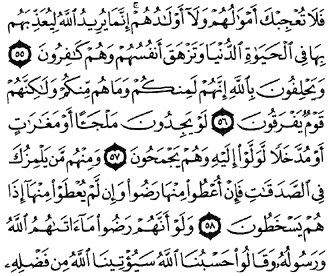 فَلَا تُعْجِبْكَ أَمْوَٰلُهُمْ وَلَآ أَوْلَٰدُهُمْ ۚ إِنَّمَا يُرِيدُ ٱللَّهُ لِيُعَذِّبَهُم
بِهَا فِى ٱلْحَيَوٰةِ ٱلدُّنْيَا وَتَزْهَقَ أَنفُسُهُمْ وَهُمْ كَٰفِرُونَ ٥٥
وَيَحْلِفُونَ بِٱللَّهِ إِنَّهُمْ لَمِنكُمْ وَمَا هُم مِّنكُمْ وَلَٰكِنَّهُمْ
قَوْمٌ يَفْرَقُونَ ٥٦ لَوْ يَجِدُونَ مَلْجَـًٔا أَوْ مَغَٰرَٰتٍ
أَوْ مُدَّخَلًا لَّوَلَّوْا۟ إِلَيْهِ وَهُمْ يَجْمَحُونَ ٥٧ وَمِنْهُم مَّن يَلْمِزُكَ
فِى ٱلصَّدَقَٰتِ فَإِنْ أُعْطُوا۟ مِنْهَا رَضُوا۟ وَإِن لَّمْ يُعْطَوْا۟ مِنْهَآ إِذَا
هُمْ يَسْخَطُونَ ٥٨ وَلَوْ أَنَّهُمْ رَضُوا۟ مَآ ءَاتَىٰهُمُ ٱللَّهُ
وَرَسُولُهُۥ وَقَالُوا۟ حَسْبُنَا ٱللَّهُ سَيُؤْتِينَا ٱللَّهُ مِن فَضْلِهِۦ